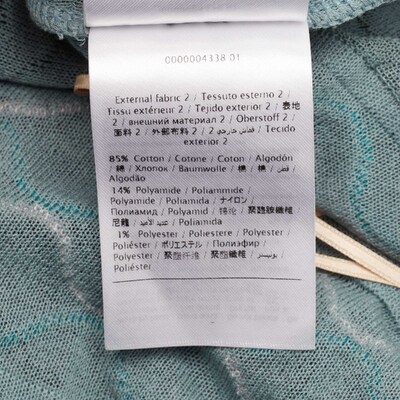 0000004338 01
External fabric 2 / Tessuto esterno 2 /
Tissu extérieur 2 / Tejido exterior 2 / 表地
2 / внешний материал 2 / Oberstoff 2 /
面料 2 / 外部布料 2 / 2 قماش خارجي / Tecido
exterior 2
85% Cotton / Cotone / Coton / Algodón
/ 綿 / Хлопок / Baumwolle / 棉 / 棉 / قطن /
Algodão
14% Polyamide / Poliammide /
Polyamide / Poliamida / ナイロン /
Полиамид / Polyamid / 锦纶 / 聚醯胺纖維 /
尼龍 / Poliamida
1% Polyester / Poliestere / Polyester /
Poliéster / ポリエステル / Полиэфир /
Polyester / 聚酯纤维 / 聚酯纖維 / بوليستر /
Poliéster